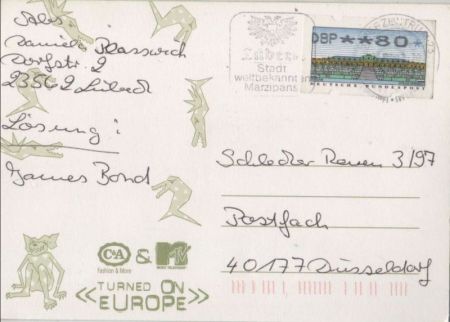 Abs
Daniela
Dorfstr. 2
23562 Lübeck
Lösung:
James Bond
Lübeck
Stadt
weltbekannten
Marzipans
DBP **80
DEUTSCHE BUNDESPOST
3/97
Postfach
40177 Düsseldorf
C&A
Fashion & More
& MTV
MUSIC TELEVISION
TURNED ON
EUROPE